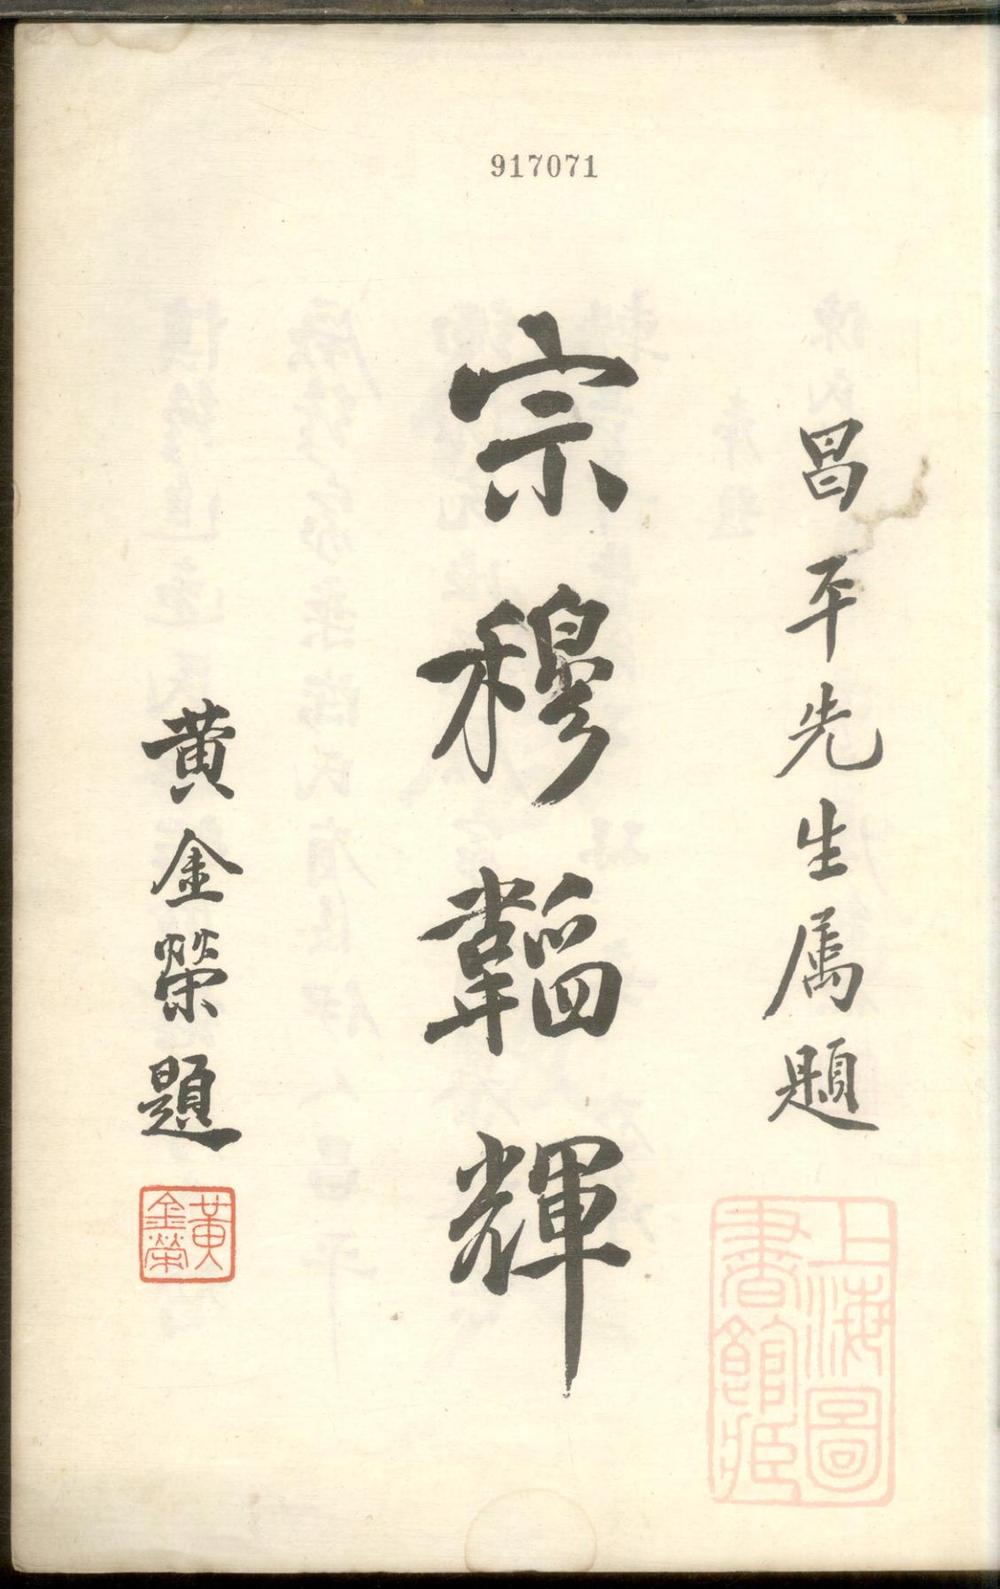 917071
昌平先生属題
宗穆韜輝
黄金榮題
黃金榮
上海圖書館藏